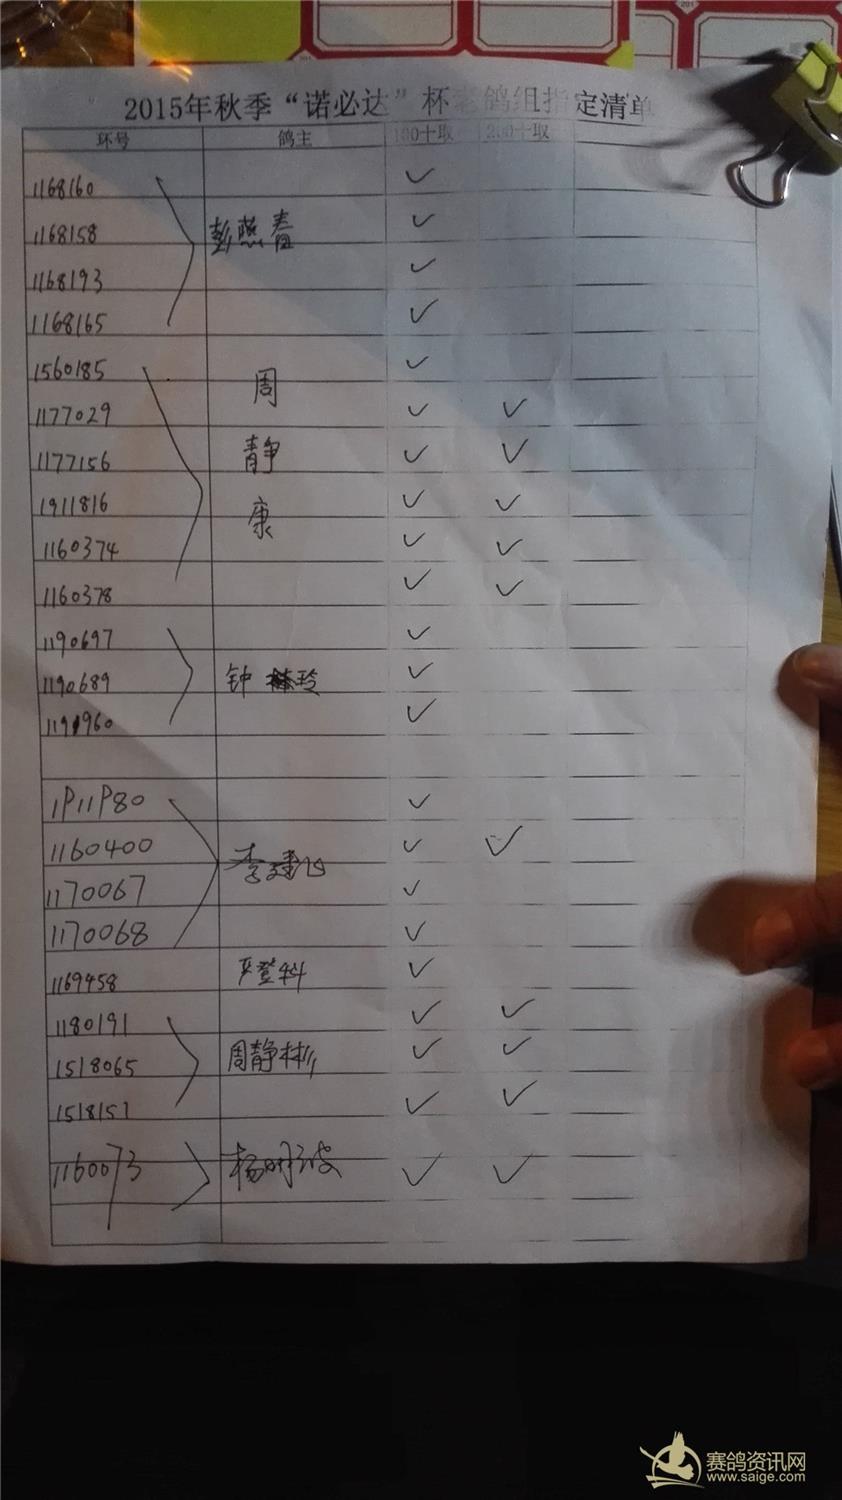 2015年秋季“诺必达”杯老鸽组指定清单
环号 鸽主 100十取 200十取
1168160 ✓
1168158 彭燕春 ✓
1168193 ✓
1168165 ✓
1560185 周 ✓
1177029 ✓ ✓
1177156 静 ✓ ✓
1911816 康 ✓ ✓
1160374 ✓ ✓
1160378 ✓ ✓
1190697 ✓
1190689 钟 玲 ✓
1191960 ✓
1911980 ✓
1160400 李建飞 ✓ ✓
1170067 ✓
1170068 ✓
1169458 严登科 ✓
1180191 ✓ ✓
1518065 周静彬 ✓ ✓
1518151 ✓ ✓
1160073 杨明波 ✓ ✓
赛鸽资讯网
www.saige.com